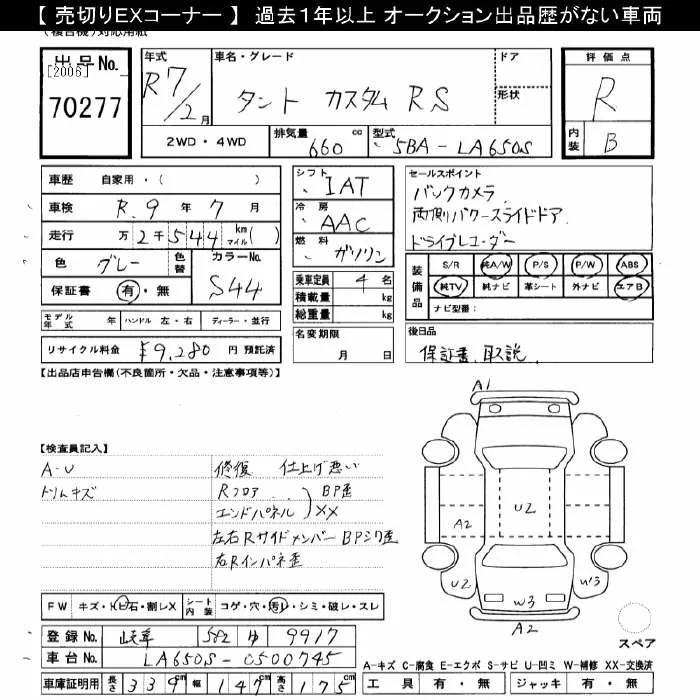 【 売切りEXコーナー 】 過去１年以上 オークション出品歴がない車両
(複合機)対応用紙
出品No.
[2006]
70277
年式
R 7/2月
車名・グレード
タント カスタム RS
ドア
形状
2WD・4WD
排気量 660 cc
型式 5BA-LA650S
評価点
R
内装 B
車歴 自家用・( )
車検 R. 9 年 7 月
走行 万2千544 km マイル( )
色 グレー 色替
カラーNo. S44
保証書 有・無
モデル年式 年 ハンドル 左・右 ディーラー・並行
リサイクル料金 ¥9,280 円 預託済
シフト IAT
冷房 AAC
燃料 ガソリン
乗車定員 4 名
積載量 kg
総重量 kg
名変期限
月 日
セールスポイント
バックカメラ
両側パワースライドドア
ドライブレコーダー
装備品
S/R 純A/W P/S P/W ABS
純TV 純ナビ 革シート 外ナビ エアB
ナビ型番：
後日品
保証書、取説、
【出品店申告欄(不良箇所・欠品・注意事項等)】
【検査員記入】
A-U
トリムキズ
修復 仕上げ悪い
Rフロア BP歪
エンドパネル XX
左右Rサイドメンバー BPシワ歪
右Rインパネ歪
FW キズ・トビ石・割レX シート内装 コゲ・穴・汚レ・シミ・破レ・スレ
登録No. 岐阜 582 ゆ 9917
車台No. LA650S-0500745
車庫証明用 長さ 339cm 幅 147cm 高さ 175cm
A1
U2
A2
U2
W3
W3
A2
スペア
A-キズ C-腐食 E-エクボ S-サビ U-凹ミ W-補修 XX-交換済
工具 有・無 ジャッキ 有・無